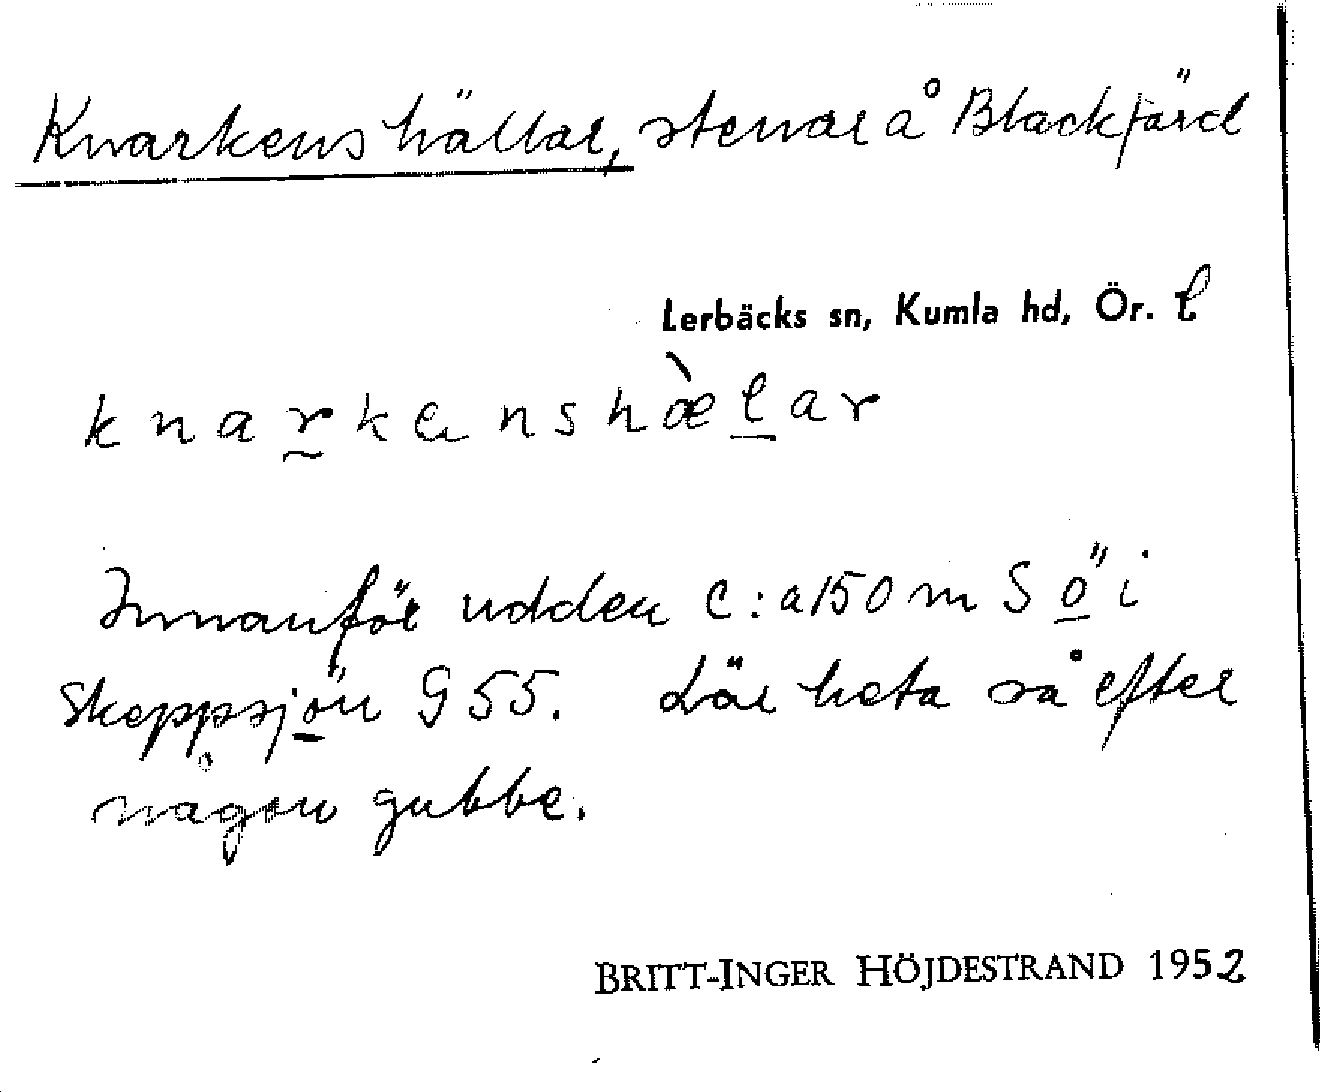 Knarkens hällar, stenar å Blackfjärd
Lerbäcks sn, Kumla hd, Ör. l
knarkenshæ̀lar
Innanför udden c:a 150 m S ö i
Skeppsjön G 55. Lär heta så efter
någon gubbe.
BRITT-INGER HÖJDESTRAND 1952